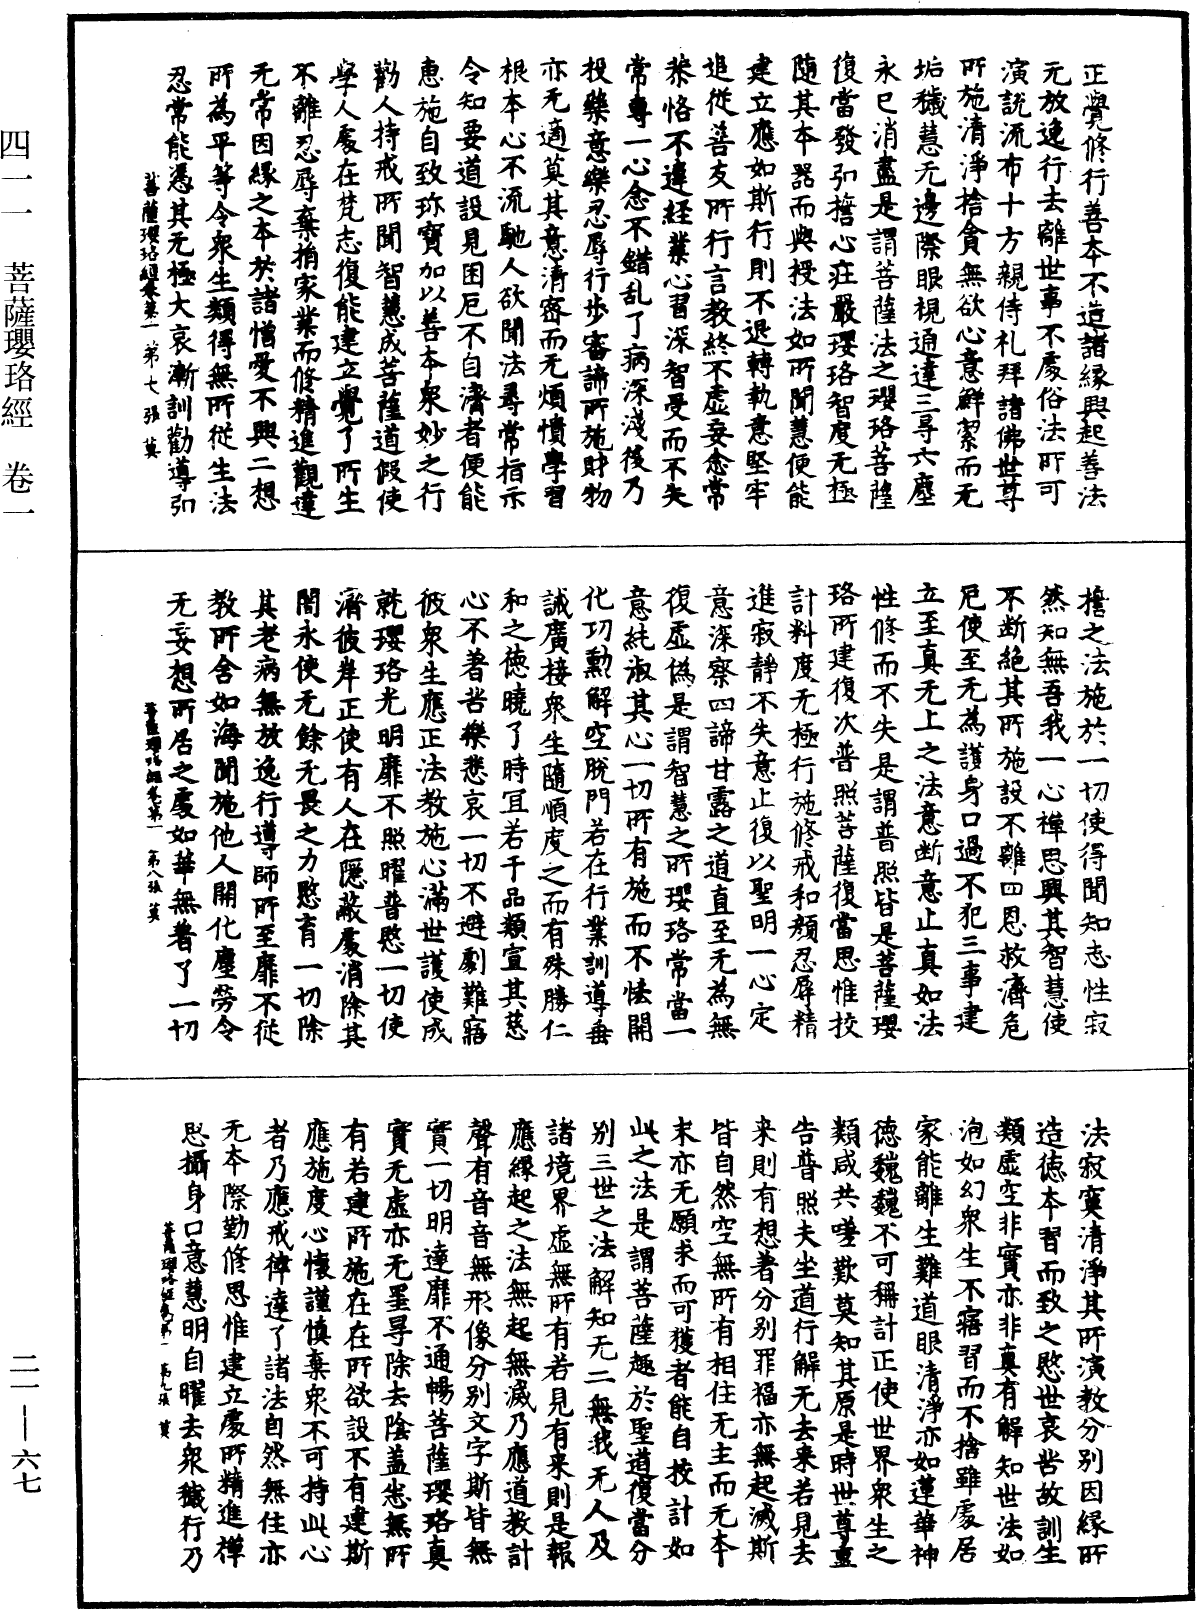 正覺修行善本不造諸緣興起善法
无放逸行去離世事不處俗法所可
演說流布十方親侍礼拜諸佛世尊
所施清淨捨貪無欲心意鮮絜而无
垢穢慧无邊際眼視通達三㝵六塵
永已消盡是謂菩薩法之瓔珞菩薩
復當發弘擔心莊嚴瓔珞智度无極
隨其本器而與授法如所聞慧便能
建立應如斯行則不退轉執意堅牢
追從善友所行言教終不虛妄念常
恭恪不違經業心習深智受而不失
常專一心念不錯乱了病深淺後乃
投藥意樂忍辱行步審諦所施財物
亦无適莫其意清密而无煩憒學習
根本心不流馳人欲聞法尋常指示
令知要道設見困厄不自濟者便能
惠施自致珎寶加以善本衆妙之行
勸人持戒所聞智慧成菩薩道假使
學人處在梵志復能建立覺了所生
不離忍辱棄捐家業而修精進觀達
无常因緣之本於諸憎愛不興二想
所為平等令衆生類得無所從生法
忍常能慿其无極大哀漸訓勸導引
菩薩瓔珞經卷第一 第七張 莫
擔之法施於一切使得聞知志性寂
然知無吾我一心禪思興其智慧使
不断絕其所施設不離四恩救濟危
厄使至无為護身口過不犯三事建
立至真无上之法意断意止真如法
性修而不失是謂普照皆是菩薩瓔
珞所建復次普照菩薩復當思惟挍
計料度无極行施修戒和顏忍辱精
進寂靜不失意止復以聖明一心定
意深察四諦甘露之道直至无為無
復虛偽是謂智慧之所瓔珞常當一
意純淑其心一切所有施而不恡開
化功勳解空脫門若在行業訓導垂
誡廣接衆生隨順度之而有殊勝仁
和之德曉了時冝若干品類宣其慈
心不著苦樂悲哀一切不避劇難寤
彼衆生應正法教施心滿世護使成
就瓔珞光明靡不照曜普愍一切使
濟彼岸正使有人在隱蔽處消除其
闇永使无餘无畏之力愍育一切除
其老病無放逸行導師所至靡不從
教所舍如海聞施他人開化塵勞令
无妄想所居之處如華無著了一切
菩薩瓔珞經卷第一 第八張 莫
法寂寞清淨其所演教分別因緣所
造德本習而致之愍世哀苦故訓生
類虛空非實亦非真有解知世法如
泡如幻衆生不寤習而不捨雖處居
家能離生難道眼清淨亦如蓮華神
德巍巍不可稱計正使世界衆生之
類咸共嗟歎莫知其原是時世尊重
告普照夫坐道行解无去来若見去
来則有想著分別罪福亦無起滅斯
皆自然空無所有相住无主而无本
末亦无願求而可獲者能自挍計如
此之法是謂菩薩趣於聖道復當分
別三世之法解知无二無我无人及
諸境界虛無所有若見有来則是報
應緣起之法無起無滅乃應道教計
聲有音音無形像分別文字斯皆無
實一切明達靡不通暢菩薩瓔珞真
實无虛亦无罣㝵除去陰盖悉無所
有若建所施在在所欲設不有建斯
應施度心懷謹慎棄衆不可持此心
者乃應戒律達了諸法自然無住亦
无本際勤修思惟建立處所精進禪
思攝身口意慧明自曜去衆穢行乃
菩薩瓔珞經卷第一 第九張 莫
四一一 菩薩瓔珞經 卷一
二一—六七